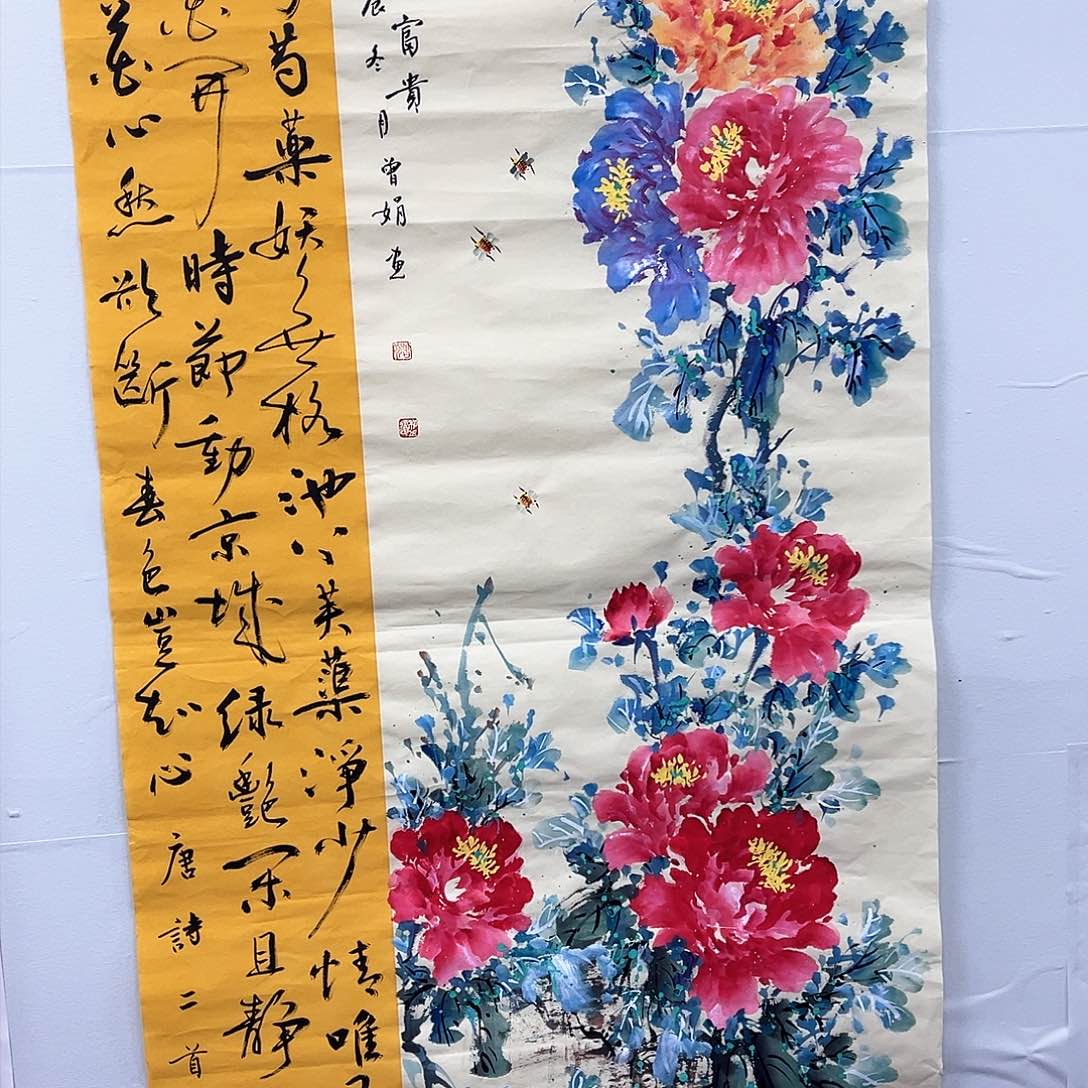 富貴
冬月曾娟画
芍藥妖无格池上芙蕖淨少情唯
花開時節動京城绿艷閑且靜
花心愁欲斷春色豈知心
唐詩二首